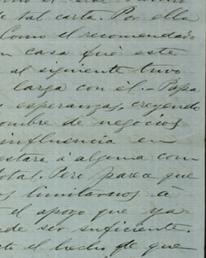 de tal carta. Por ella
Como el recomendado
en casa fué este
al siguiente tuvo
larga con él. - Papa
esperanzas, creyendo
hombre de negocios
influencia en
estare á alguna com
total. Pero parece que
limitarnos á
el apoyo que ya
de ser suficiente.
el hecho de que